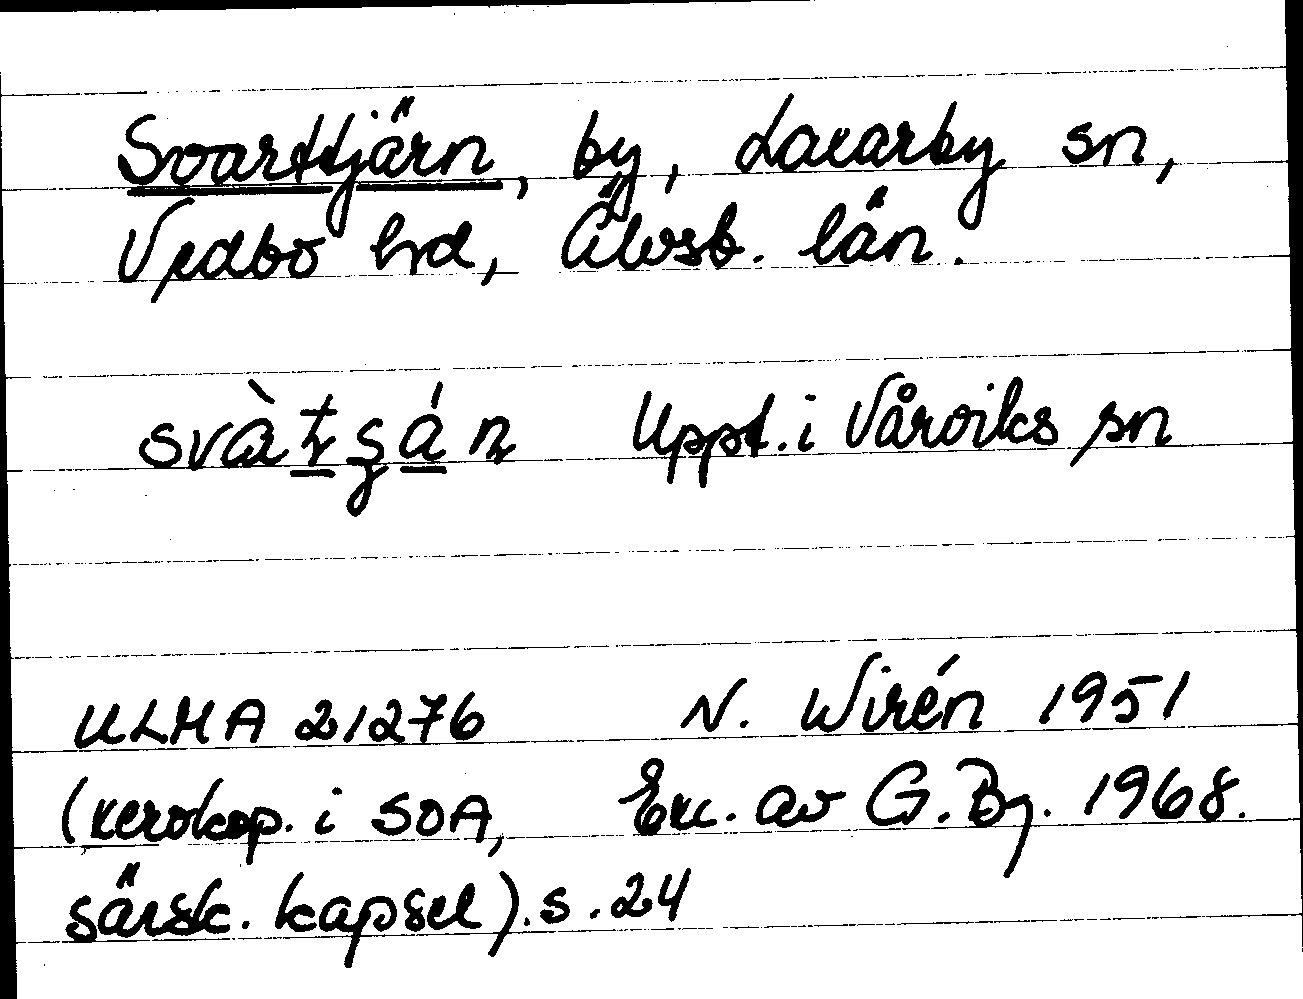 Svarttjärn, by, Laxarby sn,
Vedbo hd, Älvsb. län.
Uppt. i Vårviks sn
ULMA 21276 N. Wirén 1951
(xerokop. i SOA, Exc. av G. Bg. 1968.
särsk. kapsel). s. 24